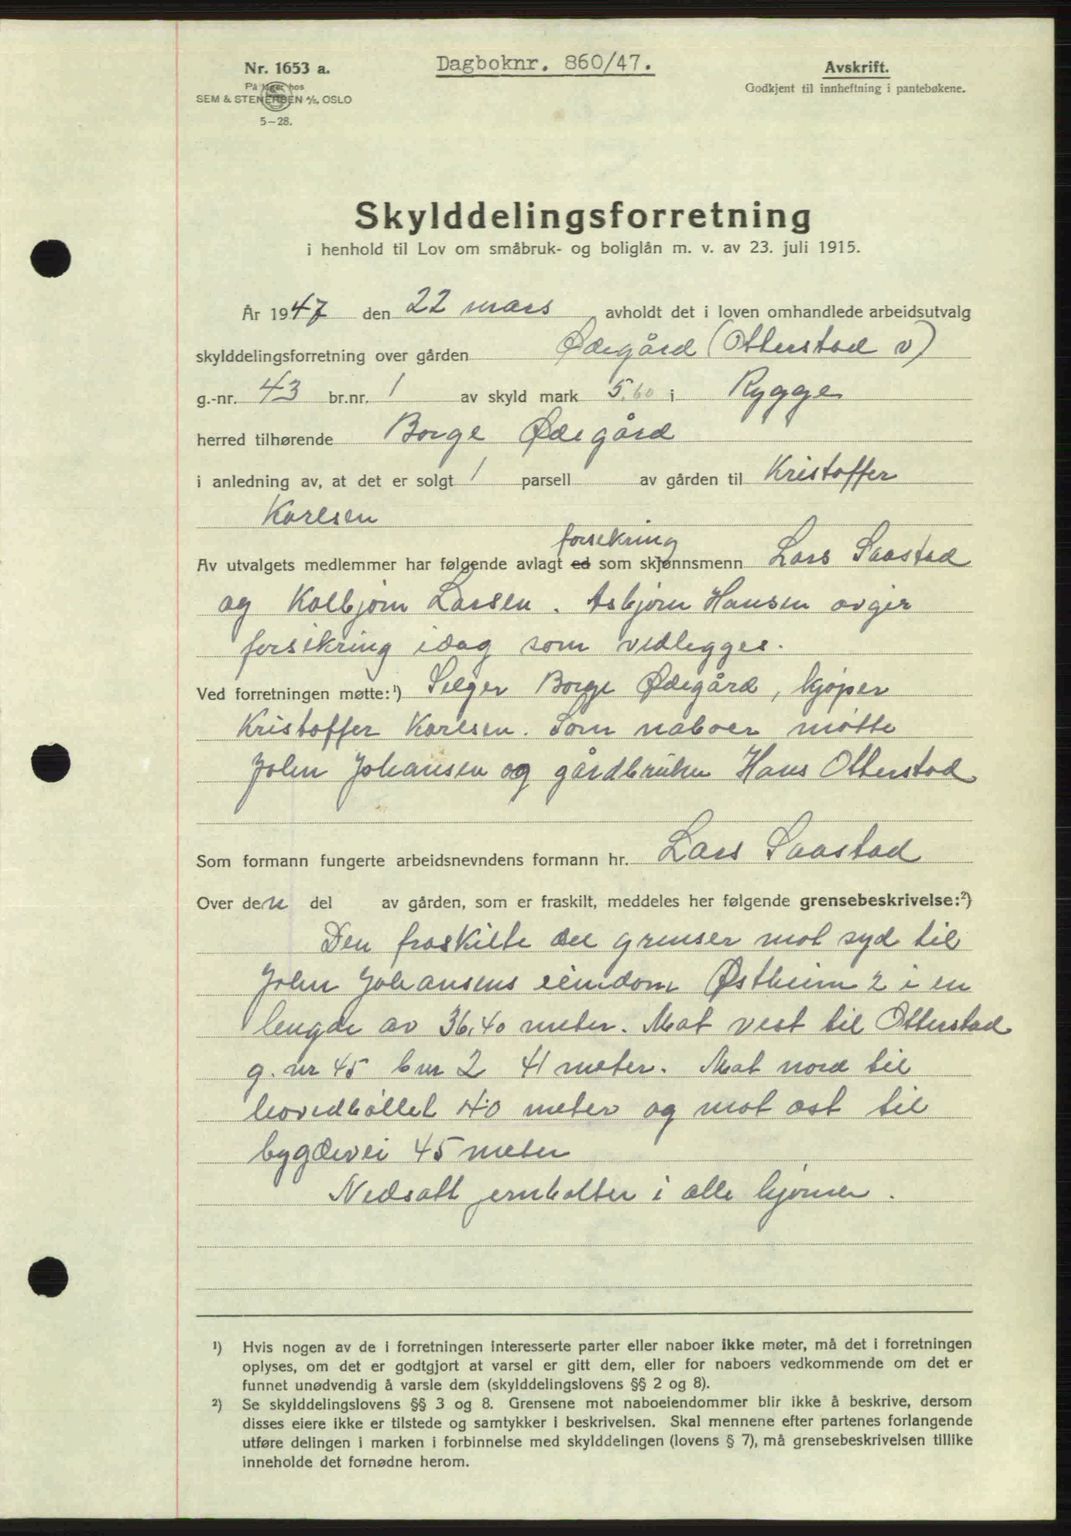 Nr. 1653 a.
På lager hos
SEM & STENERSEN A/S, OSLO
5-28.
Dagboknr. 860/47.
Avskrift.
Godkjent til innheftning i pantebøkene.
Skylddelingsforretning
i henhold til Lov om småbruk- og boliglån m. v. av 23. juli 1915.
År 1947 den 22 mars avholdt det i loven omhandlede arbeidsutvalg
skylddelingsforretning over gården Ødegård (Otterstad v)
g.-nr. 43 br.nr. 1 av skyld mark 5.60 i Rygge
herred tilhørende Borge Ødegård
i anledning av, at det er solgt 1 parsell av gården til Kristoffer
Karlsen
forsikring
Av utvalgets medlemmer har følgende avlagt ed som skjønnsmenn Lars Saastad
og Kolbjørn Larsen. Asbjørn Hansen avgir
forsikring idag som vedlegges.
Ved forretningen møtte:¹) Selger Borge Ødegård, kjøper
Kristoffer Karlsen. Som naboer møtte
John Johansen og gårdbruker Hans Otterstad
Som formann fungerte arbeidsnevndens formann hr. Lars Saastad
Over den del av gården, som er fraskilt, meddeles her følgende grensebeskrivelse:²)
Den fraskilte del grenser mot syd til
John Johansens eiendom Østheim 2 i en
lengde av 36,40 meter. Mot vest til Otterstad
g. nr 45 bnr 2 41 meter. Mot nord til
hovedbøllet 40 meter og mot øst til
bygdevei 45 meter
Nedsatt jernbolter i alle hjørner.
¹) Hvis nogen av de i forretningen interesserte parter eller naboer ikke møter, må det i forretningen
oplyses, om det er godtgjort at varsel er gitt dem, eller for naboers vedkommende om det er
funnet unødvendig å varsle dem (skylddelingslovens §§ 2 og 8).
²) Se skylddelingslovens §§ 3 og 8. Grensene mot naboeiendommer blir ikke å beskrive, dersom
disses eiere ikke er tilstede og samtykker i beskrivelsen. Skal mennene efter partenes forlangende
utføre delingen i marken i forbinnelse med skylddelingen (lovens § 7), må grensebeskrivelsen tillike
inneholde det fornødne herom.